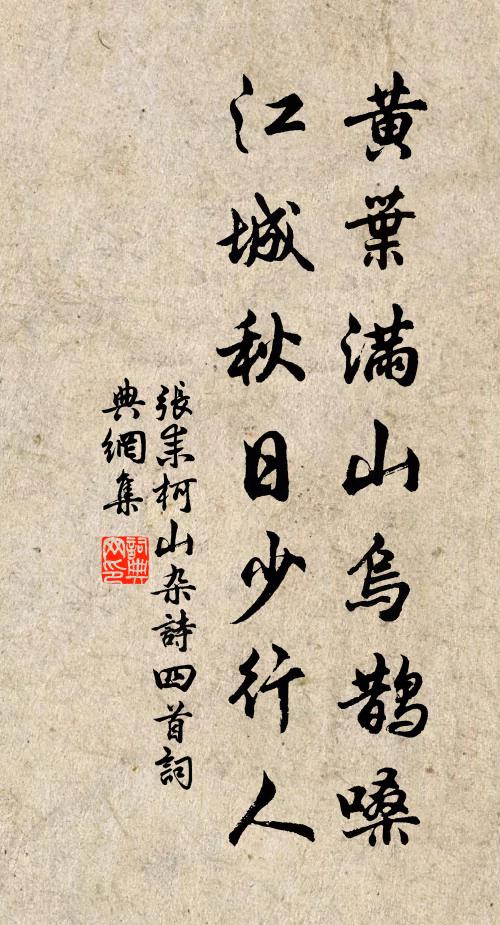 黄葉满山烏鵲嗓
江城秋日少行人
張耒柯山杂詩四首詞
典網集
詞典
网印